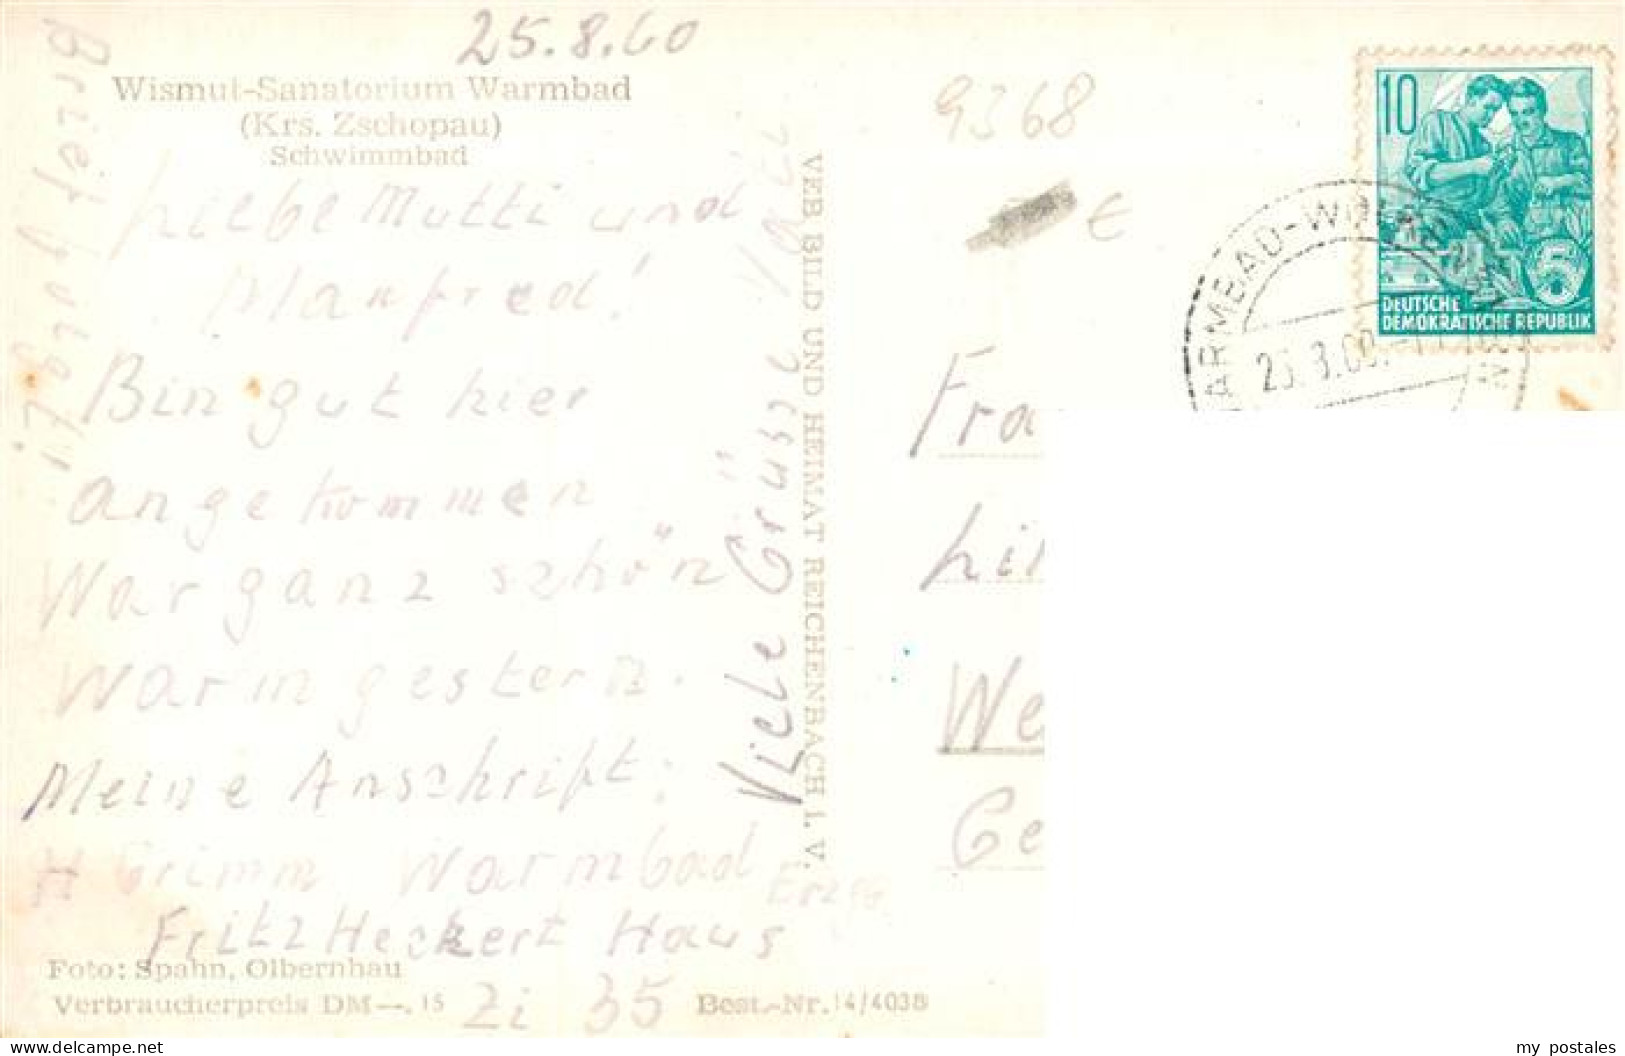 25.8.60
Wismut-Sanatorium Warmbad
(Krs. Zschopau)
Schwimmbad
Liebe Mutti und
Manfred!
Bin gut hier
angekommen
War ganz schön
warm gestern.
Meine Anschrift:
H Grimm Warmbad Erzg
Fritz Heckert Haus
Zi 35
Foto: Spahn, Olbernhau
Verbraucherpreis DM —.15
Best.-Nr. 14/4038
Brief folgt!
Viele Grüsse Vati
VEB BILD UND HEIMAT REICHENBACH I. V.
9368
€
10
DEUTSCHE
DEMOKRATISCHE REPUBLIK
5
WARMBAD-WOLKENSTEIN
Fra
Lin
We
Ge
www.delcampe.net
my_postales